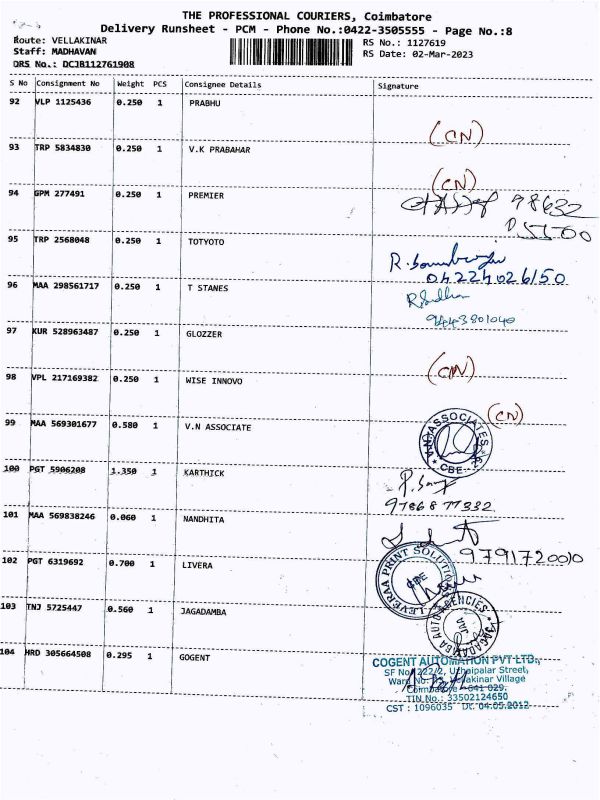 THE PROFESSIONAL COURIERS, Coimbatore
Delivery Runsheet - PCM - Phone No.:0422-3505555 - Page No.:8
Route: VELLAKINAR
RS No.: 1127619
Staff: MADHAVAN
RS Date: 02-Mar-2023
DRS No.: DCJB112761908
S No Consignment No Weight PCS Consignee Details Signature
92 VLP 1125436 0.250 1 PRABHU
(CN)
93 TRP 5834830 0.250 1 V.K PRABAHAR
(CN)
94 GPM 277491 0.250 1 PREMIER
98632
55500
95 TRP 2568048 0.250 1 TOTYOTO
04224026150
96 MAA 298561717 0.250 1 T STANES
9443801040
97 KUR 528963487 0.250 1 GLOZZER
(CN)
98 VPL 217169382 0.250 1 WISE INNOVO
(CN)
99 MAA 569301677 0.580 1 V.N ASSOCIATE
V.N. ASSOCIATES
CBE
100 PGT 5906208 1.350 1 KARTHICK
9786877332
101 MAA 569838246 0.060 1 NANDHITA
9791720010
102 PGT 6319692 0.700 1 LIVERA
LEVERAA PRINT SOLUTION
CBE
103 TNJ 5725447 0.560 1 JAGADAMBA
JAGADAMBA AUTO AGENCIES
104 HRD 305664508 0.295 1 GOGENT
COGENT AUTOMATION PVT LTD.,
SF No. 222/2, Uzhaipalar Street,
Vellakinar Village
Coimbatore - 641 029.
TIN No.: 33502124650
CST : 1096035 Dt. 04.05.2012